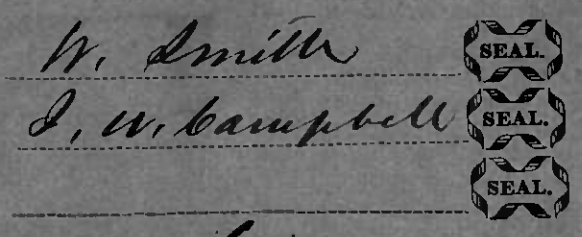 W. Smith SEAL.
J. W. Campbell SEAL.
SEAL.